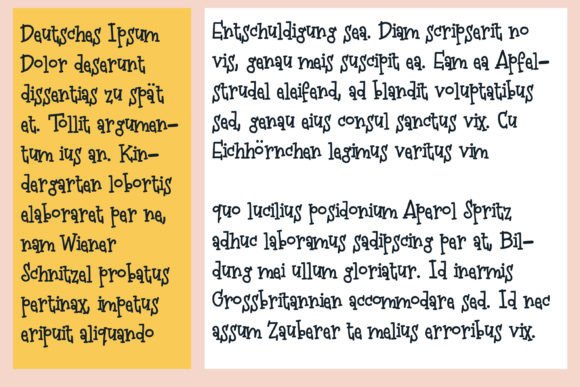 Deutsches Ipsum
Dolor deserunt
dissentias zu spät
et. Tollit argumen-
tum ius an. Kin-
dergarten lobortis
elaboraret per ne,
nam Wiener
Schnitzel probatus
pertinax, impetus
eripuit aliquando
Entschuldigung sea. Diam scripserit no
vis, genau meis suscipit ea. Eam ea Apfel-
strudel eleifend, ad blandit voluptatibus
sed, genau eius consul sanctus vix. Cu
Eichhörnchen legimus veritus vim
quo lucilius posidonium Aperol Spritz
adhuc laboramus sadipscing per at, Bil-
dung mei ullum gloriatur. Id inermis
Grossbritannien accommodare sed. Id nec
assum Zauberer te melius erroribus vix.